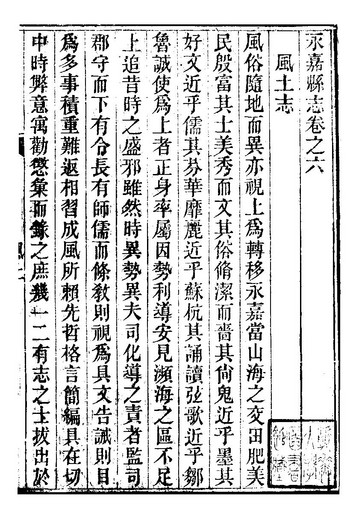 永嘉縣志卷之六
風土志
風俗隨地而異亦視上為轉移永嘉當山海之交田肥美
民殷富其士美秀而文其俗脩潔而嗇其尚鬼近乎墨其
好文近乎儒其芬華靡麗近乎蘇杭其誦讀弦歌近乎鄒
魯誠使為上者正身率屬因勢利導安見瀕海之區不足
上追昔時之盛邪雖然時異勢異夫司化導之責者監司
郡守而下有令長有師儒而條教則視為具文告誡則目
為多事積重難返相習成風所賴先哲格言簡編具在切
中時弊意寓勸懲彙而錄之庶幾一二有志之士拔出於